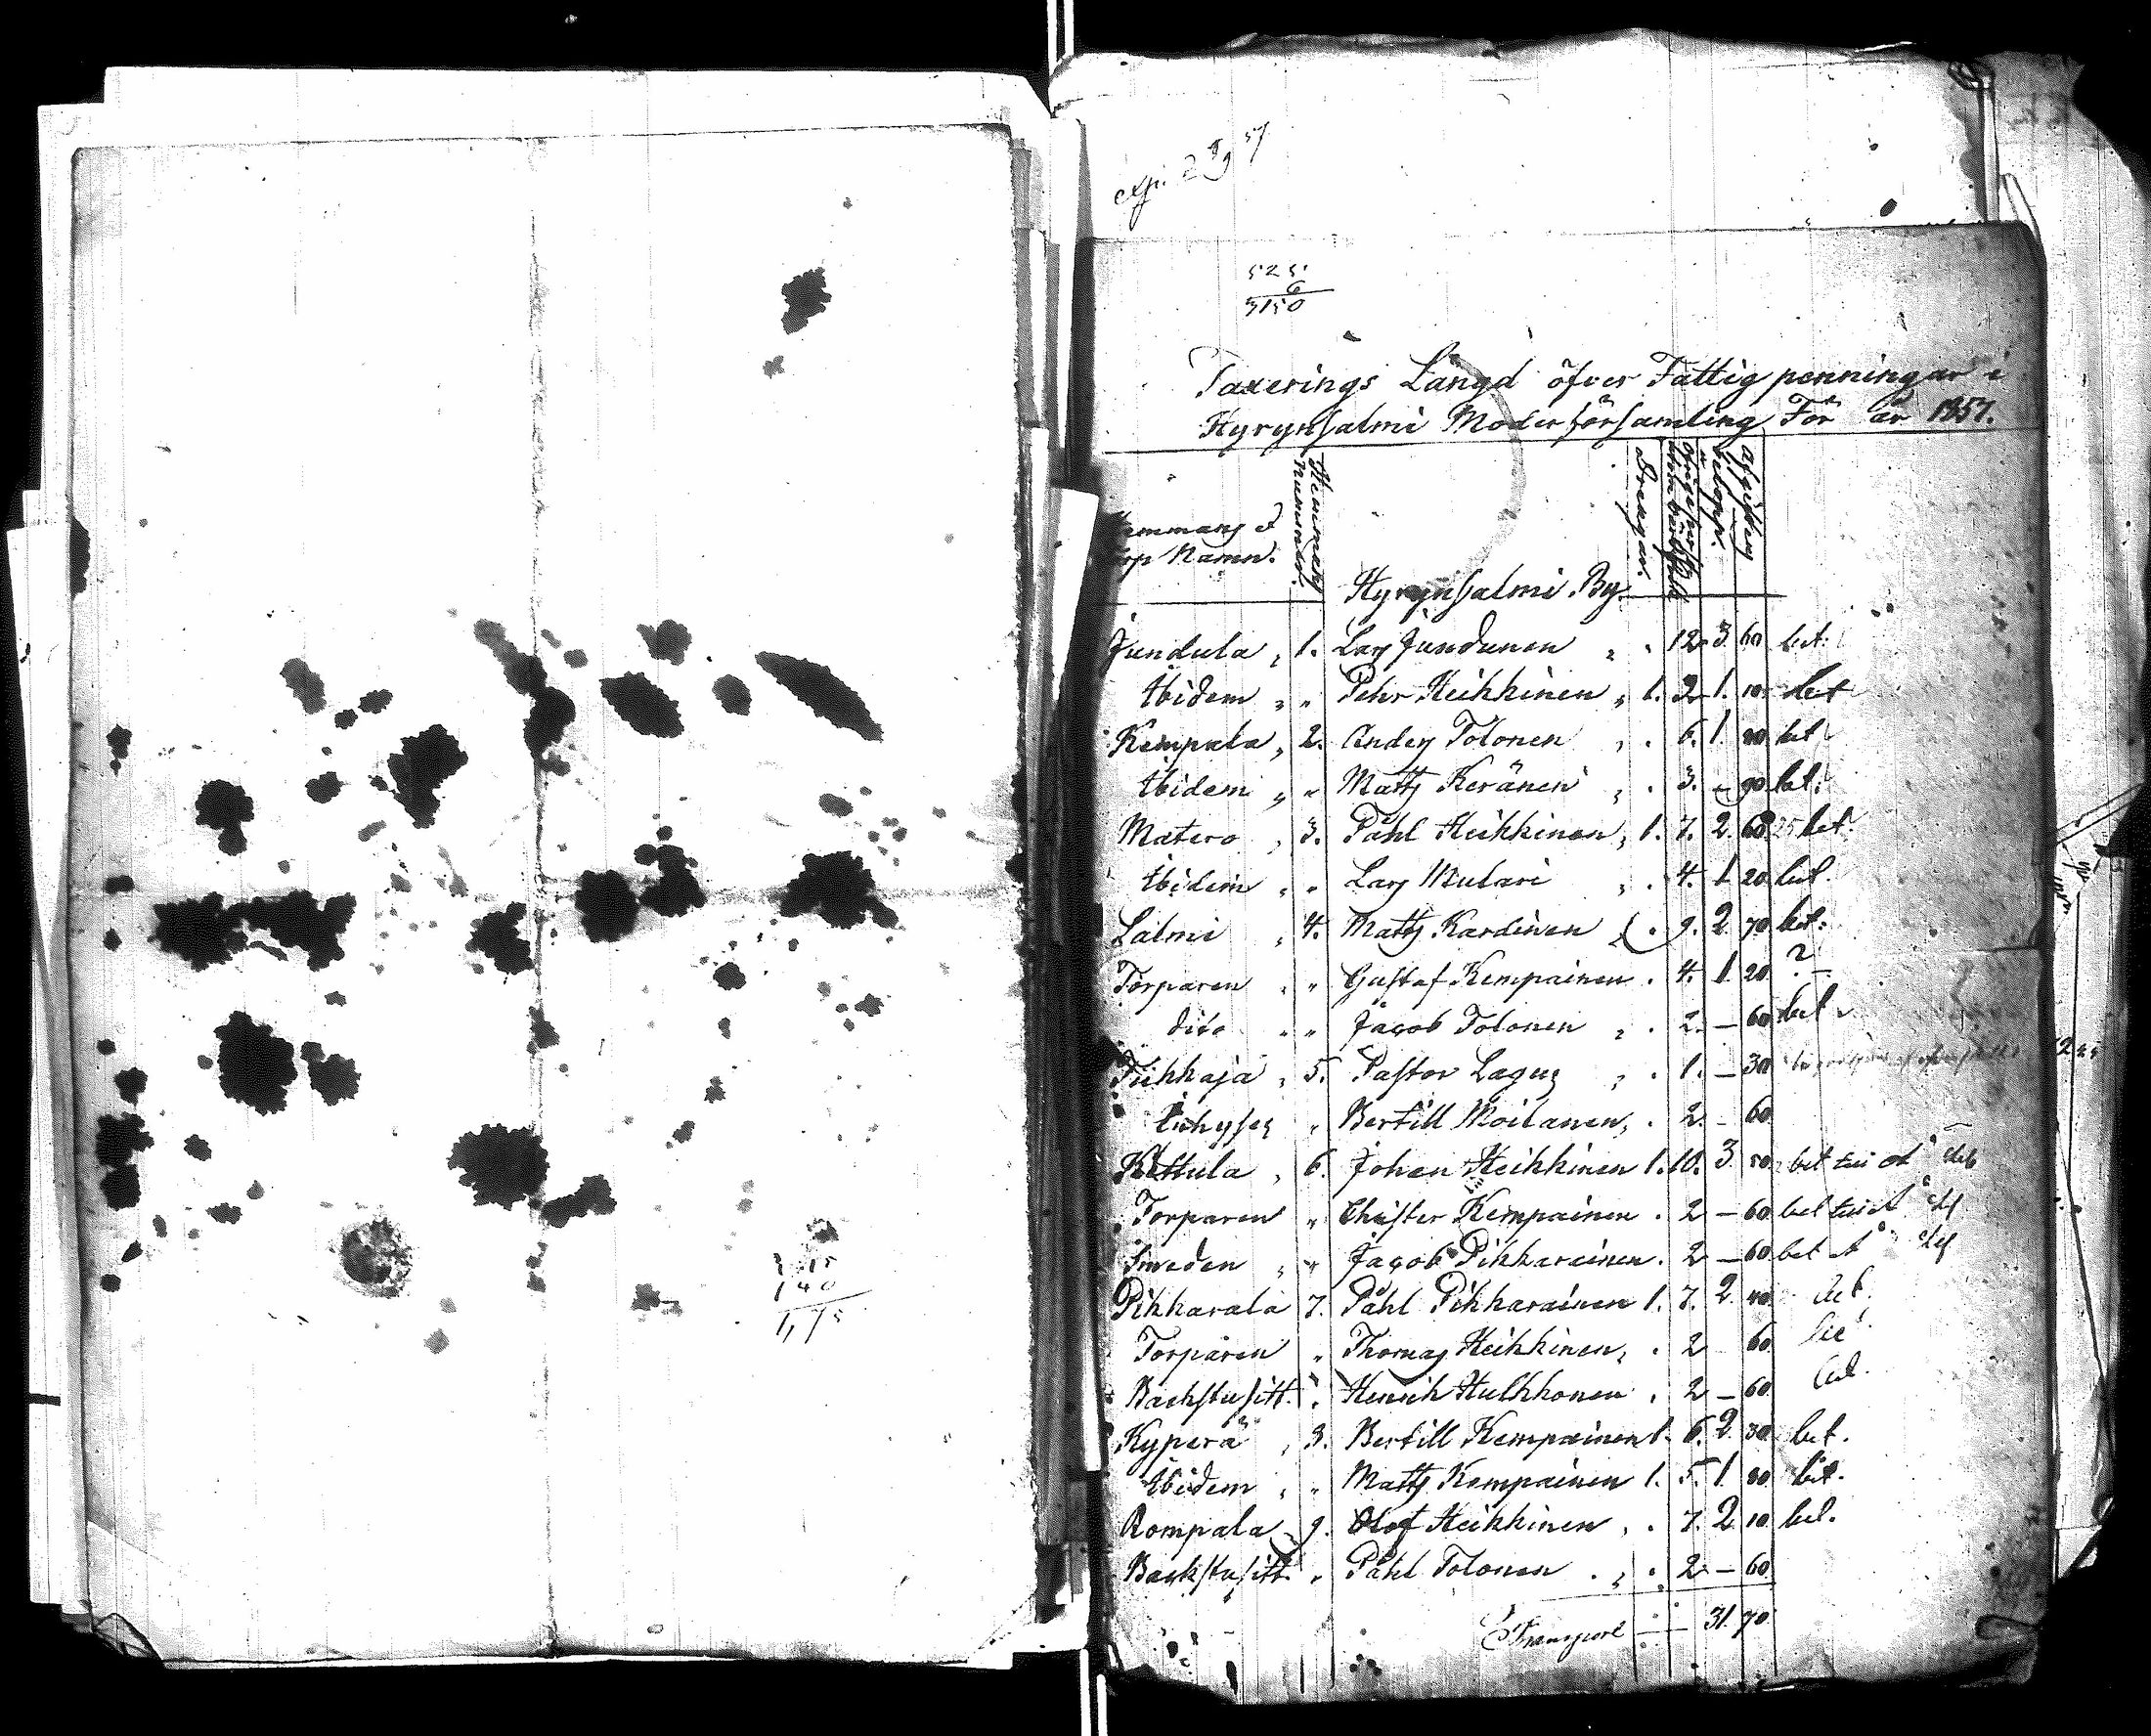 3 15
1 40
1,75
525
6
3150
Taxerings Längd öfver Fattig penningar i
Hyrynsalmi Moderförsamling För år 1857.
Hemmans Nummer.
Drengar.
Beloppet.
Afgiften
Namn.
Hyrynsalmi By.
Jundula „ 1. Lars Jundunen „ . 12 3 60 bet:
Ibidem „ „ Pehr Heikkinen „ 1. 2 1. 10 bet
Kempala „ 2. Anders Tolonen „ . 6. 1. 80 bet
Ibidem „ „ Matts Keränen „ . 3. — 90 bet:
Matero „ 3. Påhl Heikkinen „ 1. 7. 2. 60 25 bet.
Ibidem „ „ Lars Mulari „ . 4. 1 20 bet.
Salmi „ 4. Matts Kardinen . 9. 2 70 bet:
Torparen „ „ Gustaf Kempainen . 4. 1. 20. ? —
dito „ „ Jacob Tolonen „ . 2. — 60 bet
5. Pastor Lagus „ . 1. — 30
Inhyses „ Bertill Moilanen, . 2. — 60
Kettula „ 6. Johan Heikkinen 1. 10. 3 50 bet
Torparen „ Christer Kempainen . 2 — 60 bet
Smeden „ „ Jacob Pikkarainen . 2 — 60 bet
Pikkarala 7. Påhl Pikkarainen 1. 7. 2. 40
Torparen „ Thomas Heikkinen, . 2 60
Backstusitt. „ Henrik Hulkkonen . 2 — 60
Kyperä „ 8. Bertill Kempainen 1. 6. 2. 30 bet.
Ibidem „ „ Matts Kempainen 1. 5. 1. 80 bet.
Rompala 9. Olof Heikkinen „ . 7. 2 10 bet.
Backstusitt. „ Påhl Tolonen . „ . 2 — 60
Transport — 31. 70.